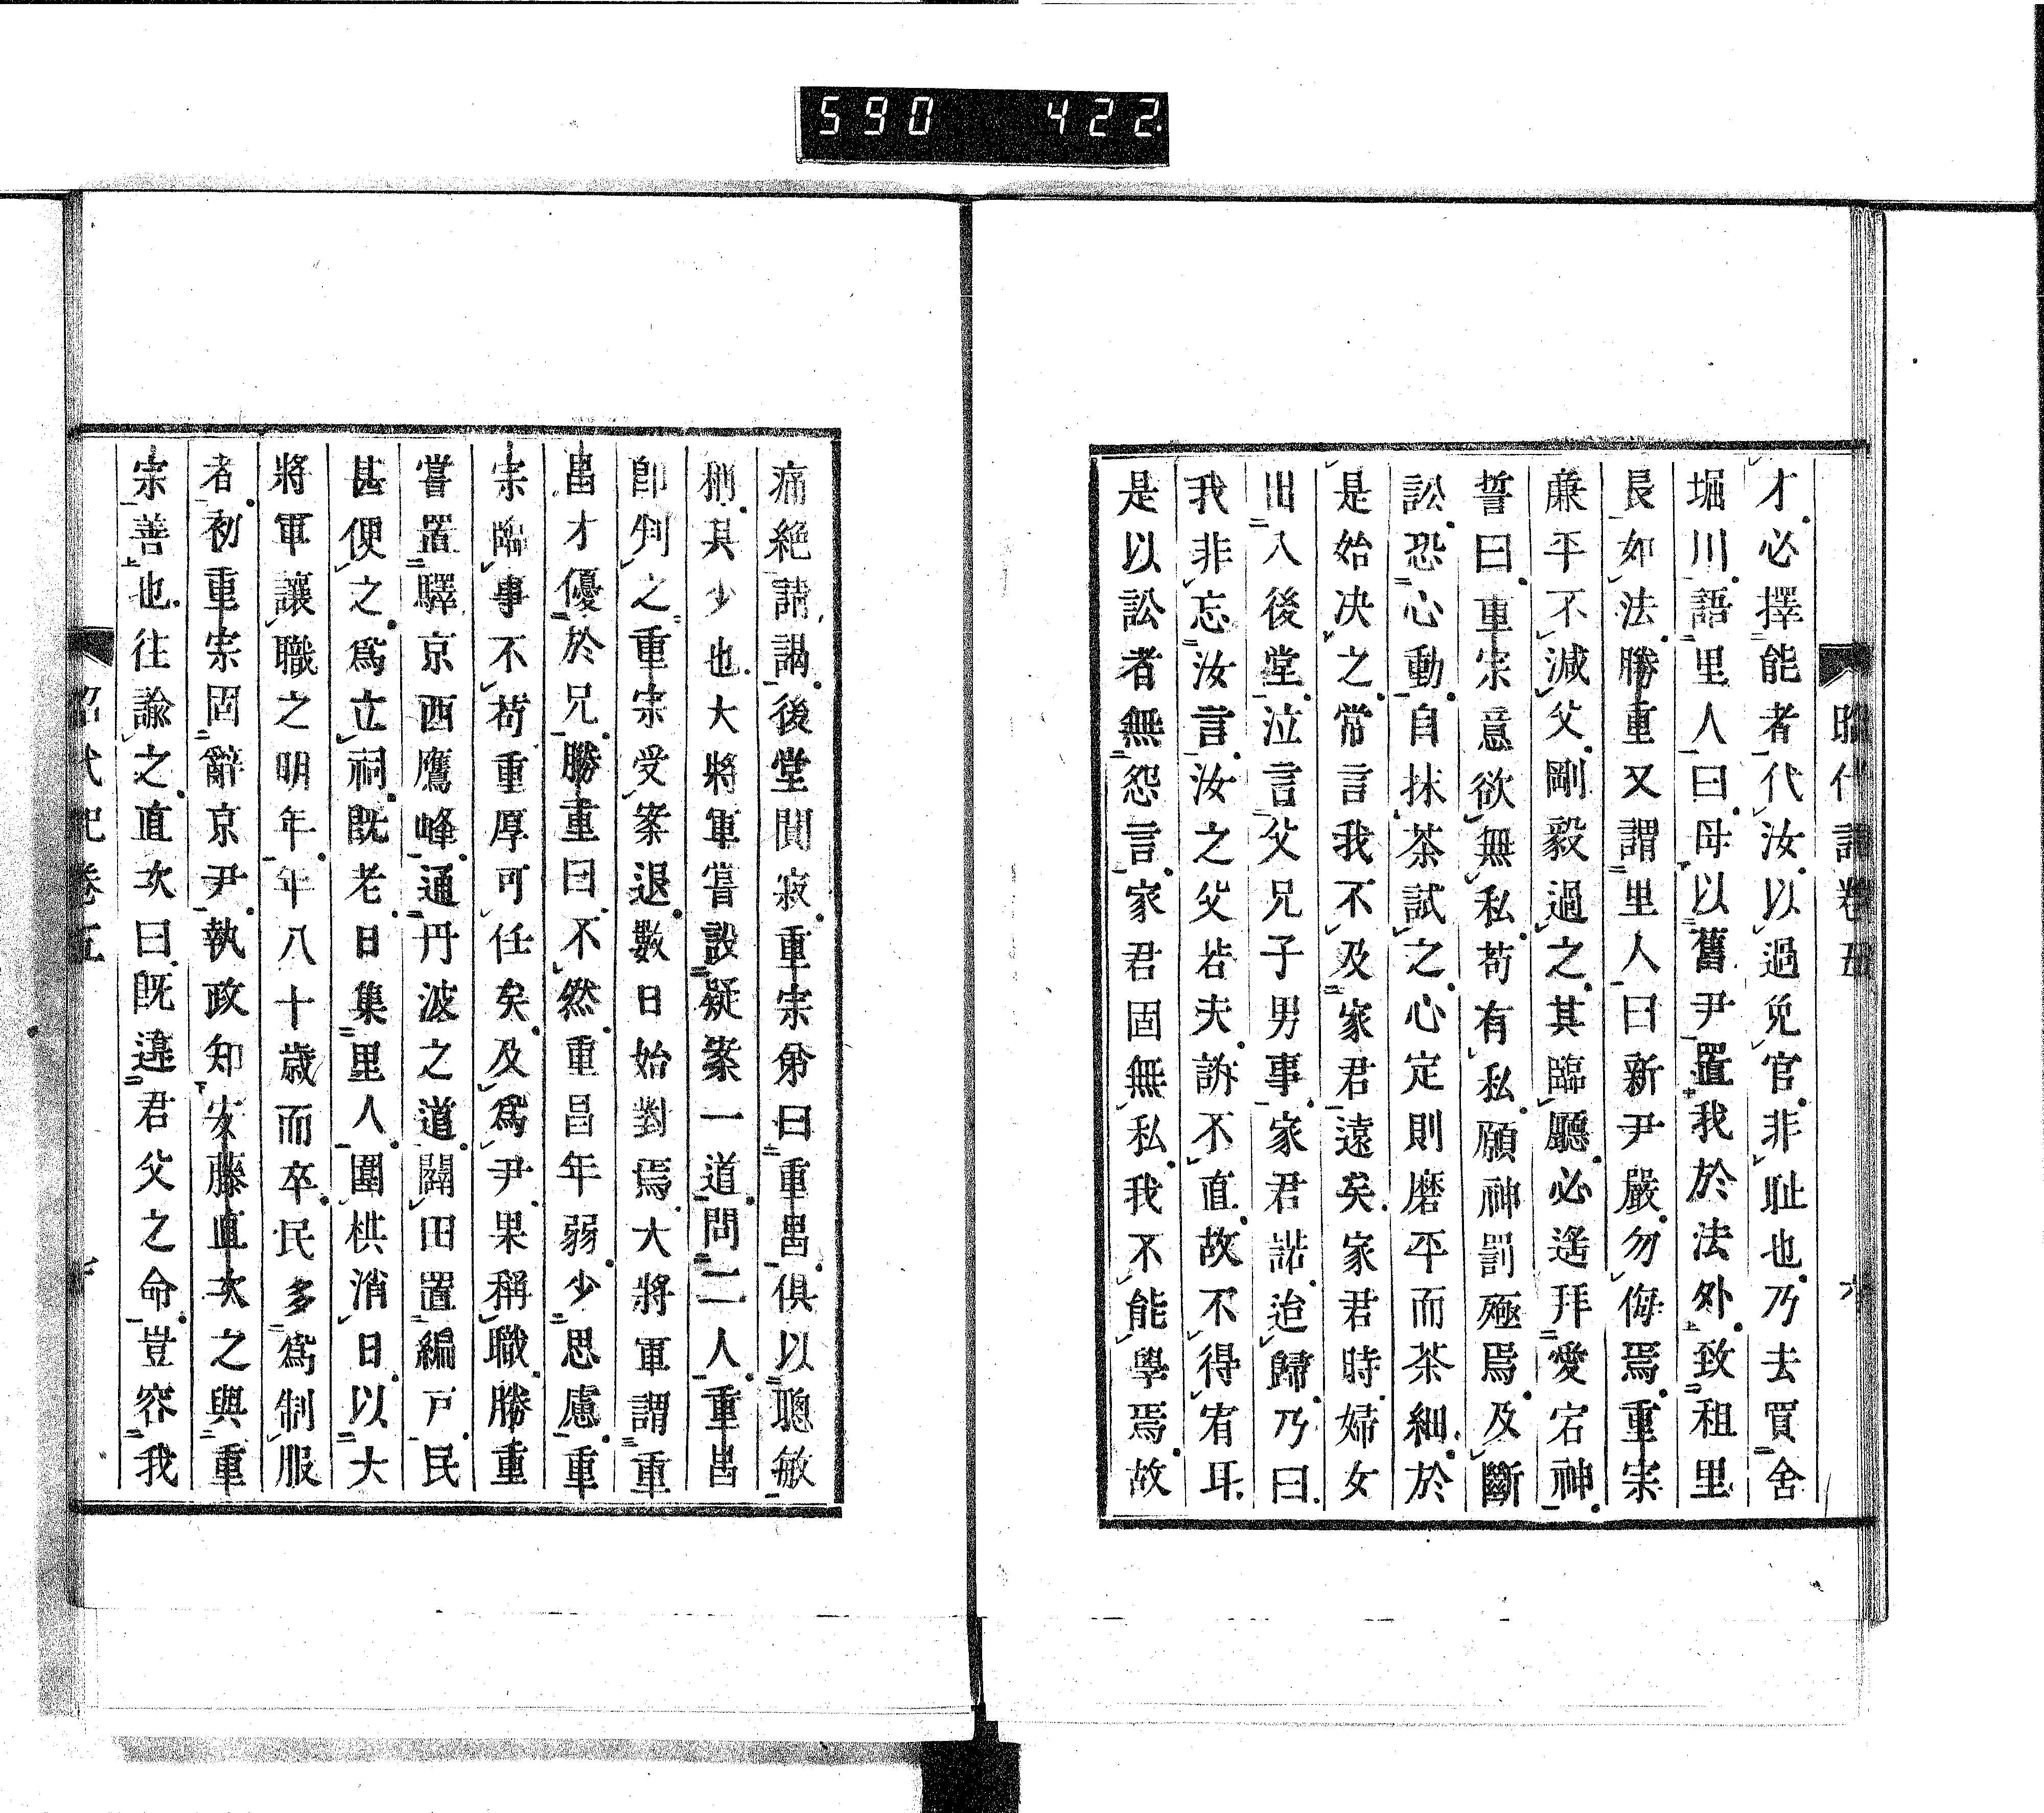 590 422
昭代記卷五 六
才必擇能者代汝以過免官非耻也乃去買舍
堀川語里人曰母以舊尹置我於法外致租里
長如法勝重又謂里人曰新尹嚴勿侮焉重宗
廉平不減父剛毅過之其臨廳必遙拜愛宕神
誓曰重宗意欲無私苟有私願神罰殛焉及斷
訟恐心動自抹茶試之心定則磨平而茶細於
是始决之常言我不及家君遠矣家君時婦女
出入後堂泣言父兄子男事家君諾迨歸乃曰
我非忘汝言汝之父若夫訴不直故不得宥耳
是以訟者無怨言家君固無私我不能學焉故
痛絶請謁後堂闃寂重宗弟曰重昌俱以聰敏
稱其少也大將軍嘗設疑案一道問二人重昌
卽判之重宗受案退數日始對焉大將軍謂重
昌才優於兄勝重曰不然重昌年弱少思慮重
宗臨事不苟重厚可任矣及爲尹果稱職勝重
嘗置驛京西鷹峰通丹波之道闢田置編戸民
甚便之爲立祠既老日集里人圍棋消日以大
將軍讓職之明年年八十歳而卒民多爲制服
者初重宗固辭京尹執政知安藤直次之與重
宗善也往諭之直次曰既違君父之命豈容我
昭代記卷五